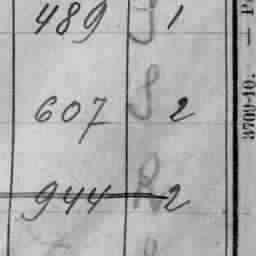 489 S 1
607 S 2
944 R 2
3709-10. —